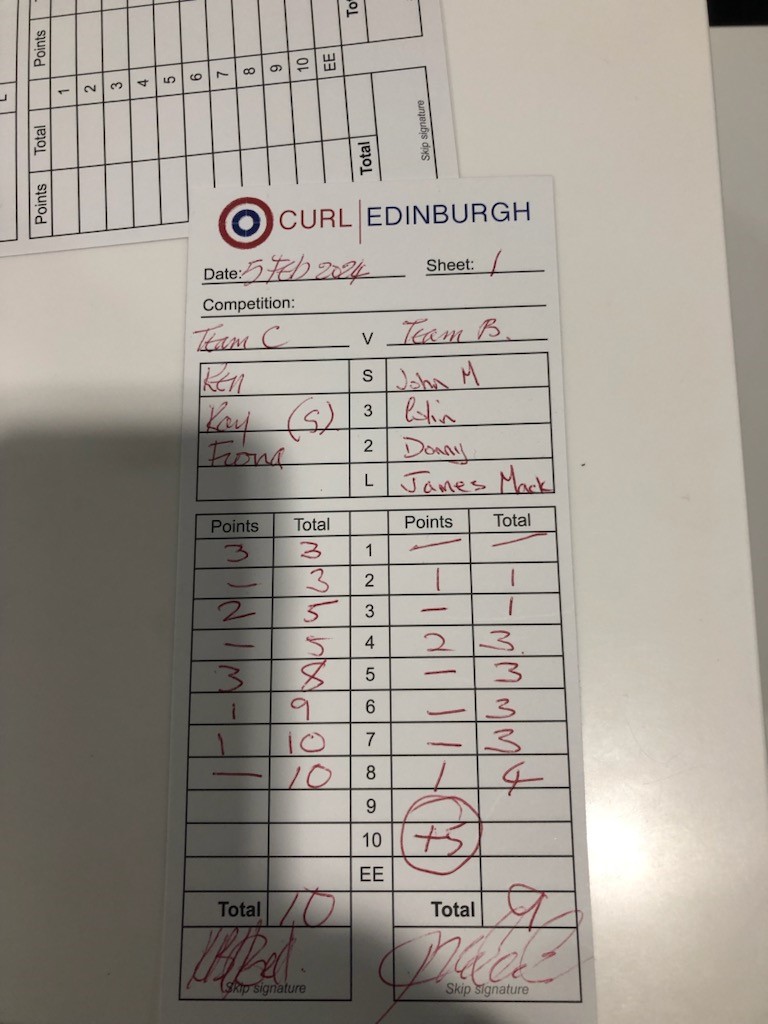 Points
1 2 3 4 5 6 7 8 9 10 EE
To
Points Total
Total
Skip signature
L
CURL EDINBURGH
Date: 5 Feb 2024 Sheet: 1
Competition:
Team C V Team B.
Ken S John M
Ray (S) 3 Colin
Fiona 2 Donny
L James Mack
Points Total Points Total
3 3 1 — —
— 3 2 1 1
2 5 3 — 1
— 5 4 2 3.
3 8 5 — 3
1 9 6 — 3
1 10 7 — 3
— 10 8 1 4
9
10 +5
EE
Total 10 Total 9
Skip signature Skip signature